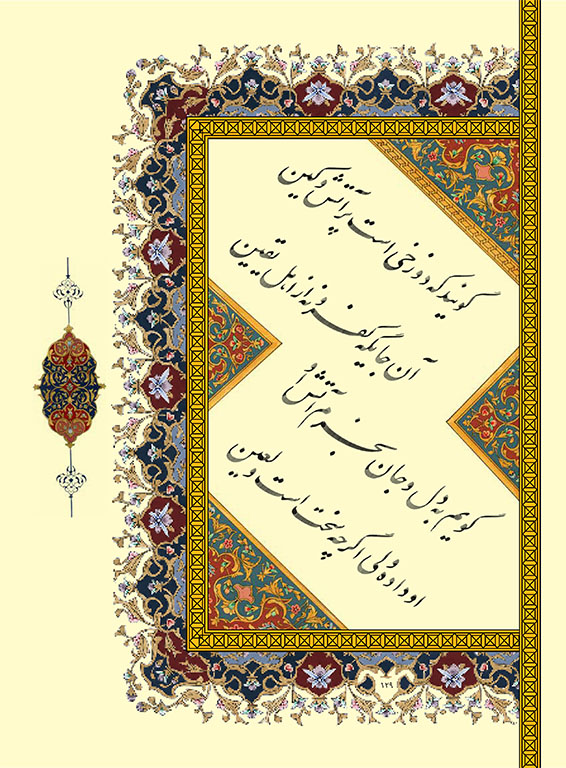 گویند که دوزخی است پر آتش و کین
آن جایگه کفر و نه از اهل یقین
گویم به دل و جان بخرم آتش او
او داده ولی اگرچه سخت است و لعین
۱۲۹